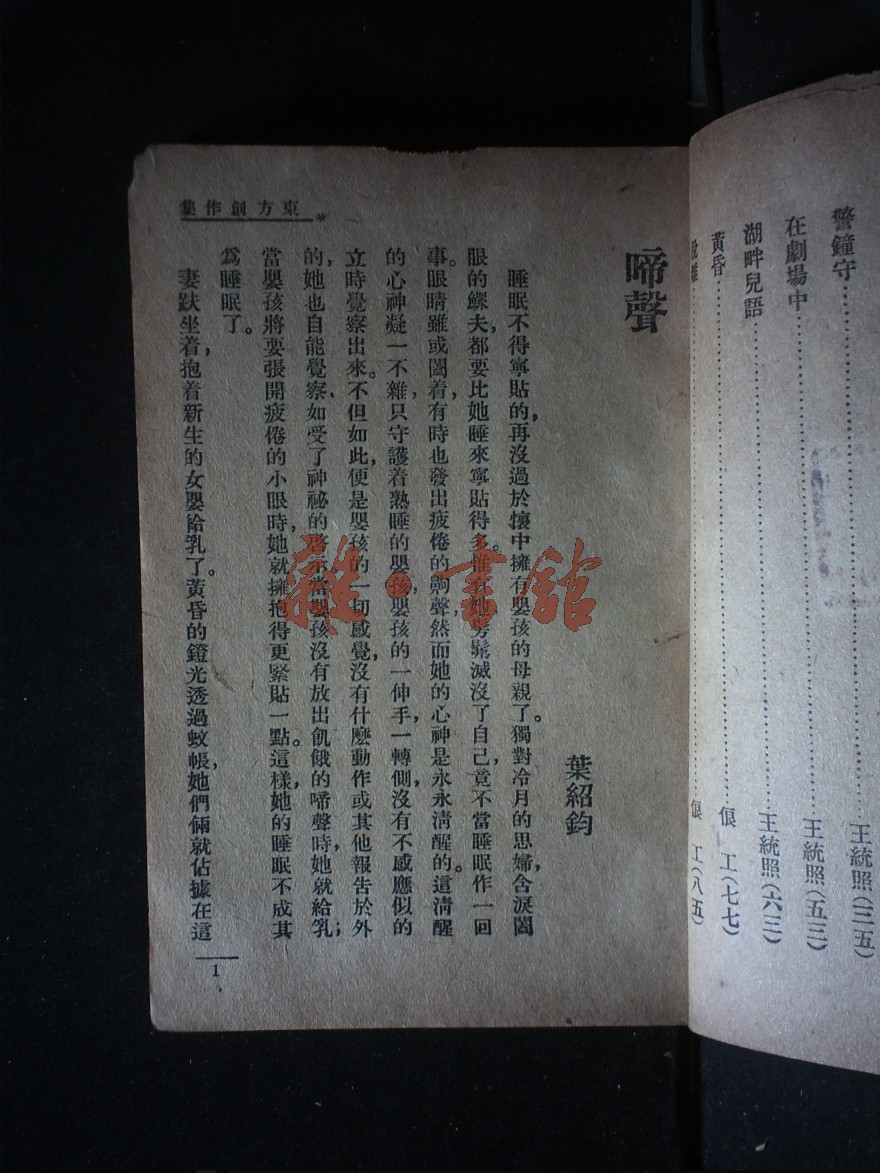 警鐘守……………………王統照(三五)
在劇場中……………………王統照(五三)
湖畔兒語……………………王統照(六三)
黃昏……………………俍工(七七)
……………………俍工(八五)
集作創方東
啼聲
葉紹鈞
睡眠不得寧貼的，再沒過於懷中擁有嬰孩的母親了。獨對冷月的思婦，含淚闔
眼的鰥夫，都要比她睡來寧貼得多。她髣髴滅沒了自己，竟不當睡眠作一回
事。眼睛雖或闔着，有時也發出疲倦的齁聲，然而她的心神是永永清醒的。這清醒
的心神凝一不雜，只守護着熟睡的嬰孩，嬰孩的一伸手，一轉側，沒有不感應似的
立時覺察出來。不但如此，便是嬰孩的一切感覺，沒有什麼動作或其他報告於外
的，她也自能覺察，如受了神祕的啓示。當嬰孩沒有放出飢餓的啼聲時，她就給乳；
當嬰孩將要張開疲倦的小眼時，她就擁抱得更緊貼一點。這樣，她的睡眠不成其
爲睡眠了。
妻趺坐着，抱着新生的女嬰給乳了。黃昏的鐙光透過蚊帳，她們倆就佔據在這
1
雜·書館